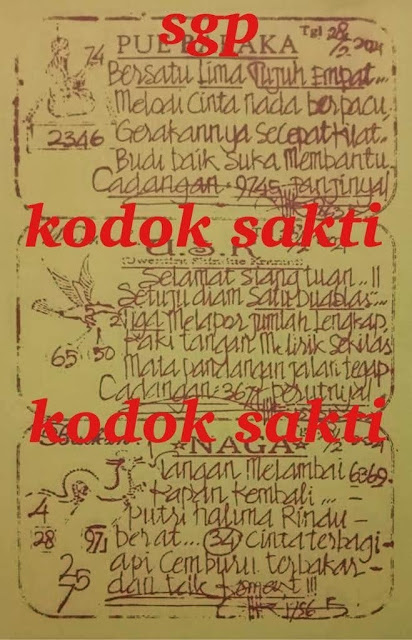 sgp
PUE PUAKA Tgl 28/2 2021
74
Bersatu Lima Tujuh Empat...
Melodi Cinta nada berpacu,
2346
Gerakannya secepat kilat.
Budi baik suka Membantu
Cadangan: 9745 janjinya!
kodok sakti
Selamat siang tuan..!!
Setuju diam Satu buablas...
Tiga Melapor jumlah lengkap.
65 50
Kaki tangan Melirik sekilas
Mata pandangan jalan tegap.
Cadangan: 3671
kodok sakti
★NAGA★
Tangan Melambai 6369.
Kapan kembali ...
4
Putri naluna Rindu -
28 97
berat... 34 cinta terbagi -
api Cemburu terbakar -
25
dan taik